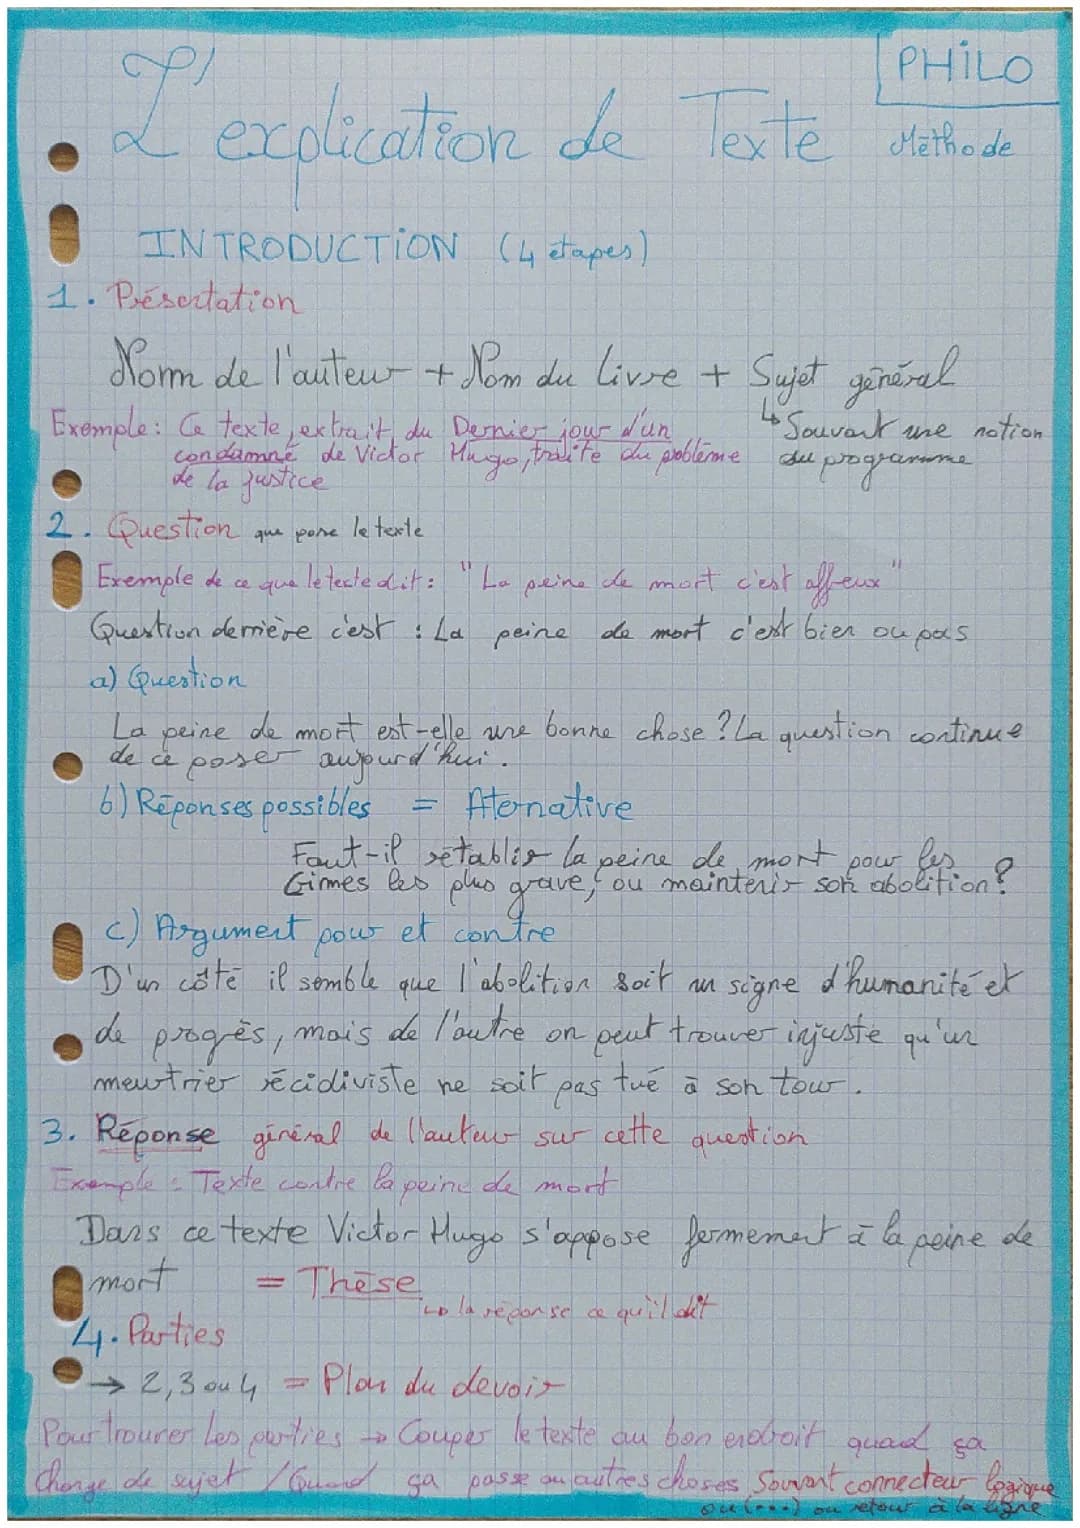 PHiLO
L'explication de Texte
Méthode
INTRODUCTiON (4 étapes)
1. Présentation
Nom de l'auteur + Nom du Livre + Sujet général
↳ Souvent une notion du programme
Exemple : Ce texte, extrait du Dernier jour d'un
condamné de Victor Hugo, traite du problème
de la justice
2. Question que pose le texte
Exemple de ce que le texte dit : "La peine de mort c'est affreux"
Question derrière c'est : La peine de mort c'est bien ou pas
a) Question
La peine de mort est-elle une bonne chose ? La question continue
de ce poser aujourd'hui.
b) Réponses possibles = Aternative
Faut-il rétablir la peine de mort pour les
Crimes les plus grave, ou maintenir son abolition ?
c) Argument pour et contre
D'un côté il semble que l'abolition soit un signe d'humanité et
de progrès, mais de l'autre on peut trouver injuste qu'un
meurtrier récidiviste ne soit pas tué à son tour.
3. Réponse général de l'auteur sur cette question
Exemple : Texte contre la peine de mort
Dans ce texte Victor Hugo s'appose fermement à la peine de
mort = Thèse
↳ la réponse ce qu'il dit
4. Parties
→ 2, 3 ou 4 = Plan du devoir
Pour trouver Les parties → Couper le texte au bon endroit quand ça
change de sujet / Quand ça passe au autres choses. Souvent connecteur logique
ou (...) ou retour à la ligne